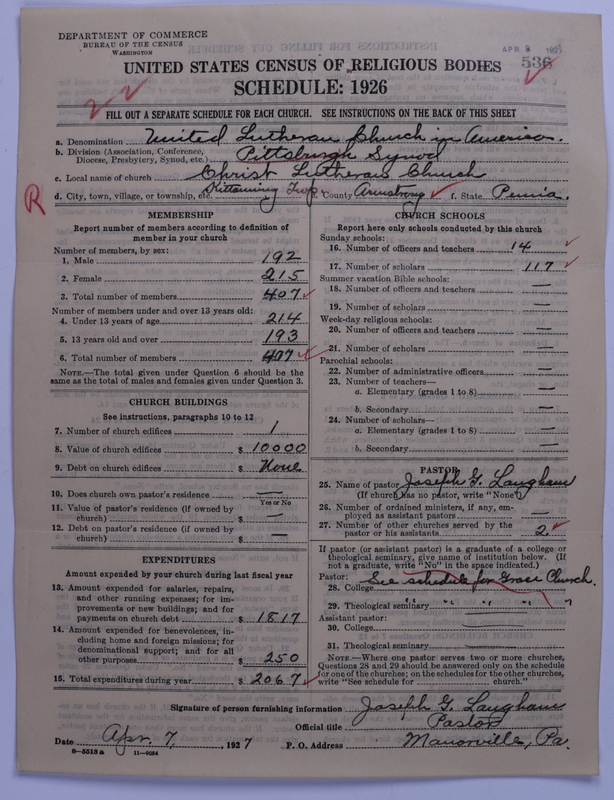 DEPARTMENT OF COMMERCE
BUREAU OF THE CENSUS
WASHINGTON
APR 8 1927
536
UNITED STATES CENSUS OF RELIGIOUS BODIES
SCHEDULE: 1926
FILL OUT A SEPARATE SCHEDULE FOR EACH CHURCH. SEE INSTRUCTIONS ON THE BACK OF THIS SHEET
a. Denomination United Lutheran Church in America.
b. Division (Association, Conference, Diocese, Presbytery, Synod, etc.) Pittsburgh Synod
c. Local name of church Christ Lutheran Church
R
d. City, town, village, or township, etc. Kittanning Twp. e. County Armstrong f. State Penna.
MEMBERSHIP
Report number of members according to definition of member in your church
Number of members, by sex:
1. Male 192
2. Female 215
3. Total number of members 407
Number of members under and over 13 years old:
4. Under 13 years of age 214
5. 13 years old and over 193
6. Total number of members 407
NOTE.—The total given under Question 6 should be the same as the total of males and females given under Question 3.
CHURCH BUILDINGS
See instructions, paragraphs 10 to 12
7. Number of church edifices 1
8. Value of church edifices $ 10000
9. Debt on church edifices $ None
10. Does church own pastor's residence —
Yes or No
11. Value of pastor's residence (if owned by church) $ —
12. Debt on pastor's residence (if owned by church) $ —
EXPENDITURES
Amount expended by your church during last fiscal year
13. Amount expended for salaries, repairs, and other running expenses; for improvements or new buildings; and for payments on church debt $ 1817
14. Amount expended for benevolences, including home and foreign missions; for denominational support; and for all other purposes $ 250
15. Total expenditures during year $ 2067
CHURCH SCHOOLS
Report here only schools conducted by this church
Sunday schools:
16. Number of officers and teachers 14
17. Number of scholars 117
Summer vacation Bible schools:
18. Number of officers and teachers —
19. Number of scholars —
Week-day religious schools:
20. Number of officers and teachers —
21. Number of scholars —
Parochial schools:
22. Number of administrative officers —
23. Number of teachers—
a. Elementary (grades 1 to 8) —
b. Secondary —
24. Number of scholars—
a. Elementary (grades 1 to 8) —
b. Secondary —
PASTOR
25. Name of pastor Joseph G. Langham
(If church has no pastor, write "None")
26. Number of ordained ministers, if any, employed as assistant pastors —
27. Number of other churches served by the pastor or his assistants 2.
If pastor (or assistant pastor) is a graduate of a college or theological seminary, give name of institution below. (If not a graduate, write "No" in the space indicated.)
Pastor: See schedule for Grace Church.
28. College
29. Theological seminary " " " "
Assistant pastor:
30. College
31. Theological seminary
NOTE.—Where one pastor serves two or more churches, Questions 28 and 29 should be answered only on the schedule for one of the churches; on the schedules for the other churches, write "See schedule for ______ church."
Signature of person furnishing information Joseph G. Langham
Official title Pastor
Date Apr. 7, 1927 P. O. Address Manorville, Pa.
8—5518a 11—9034